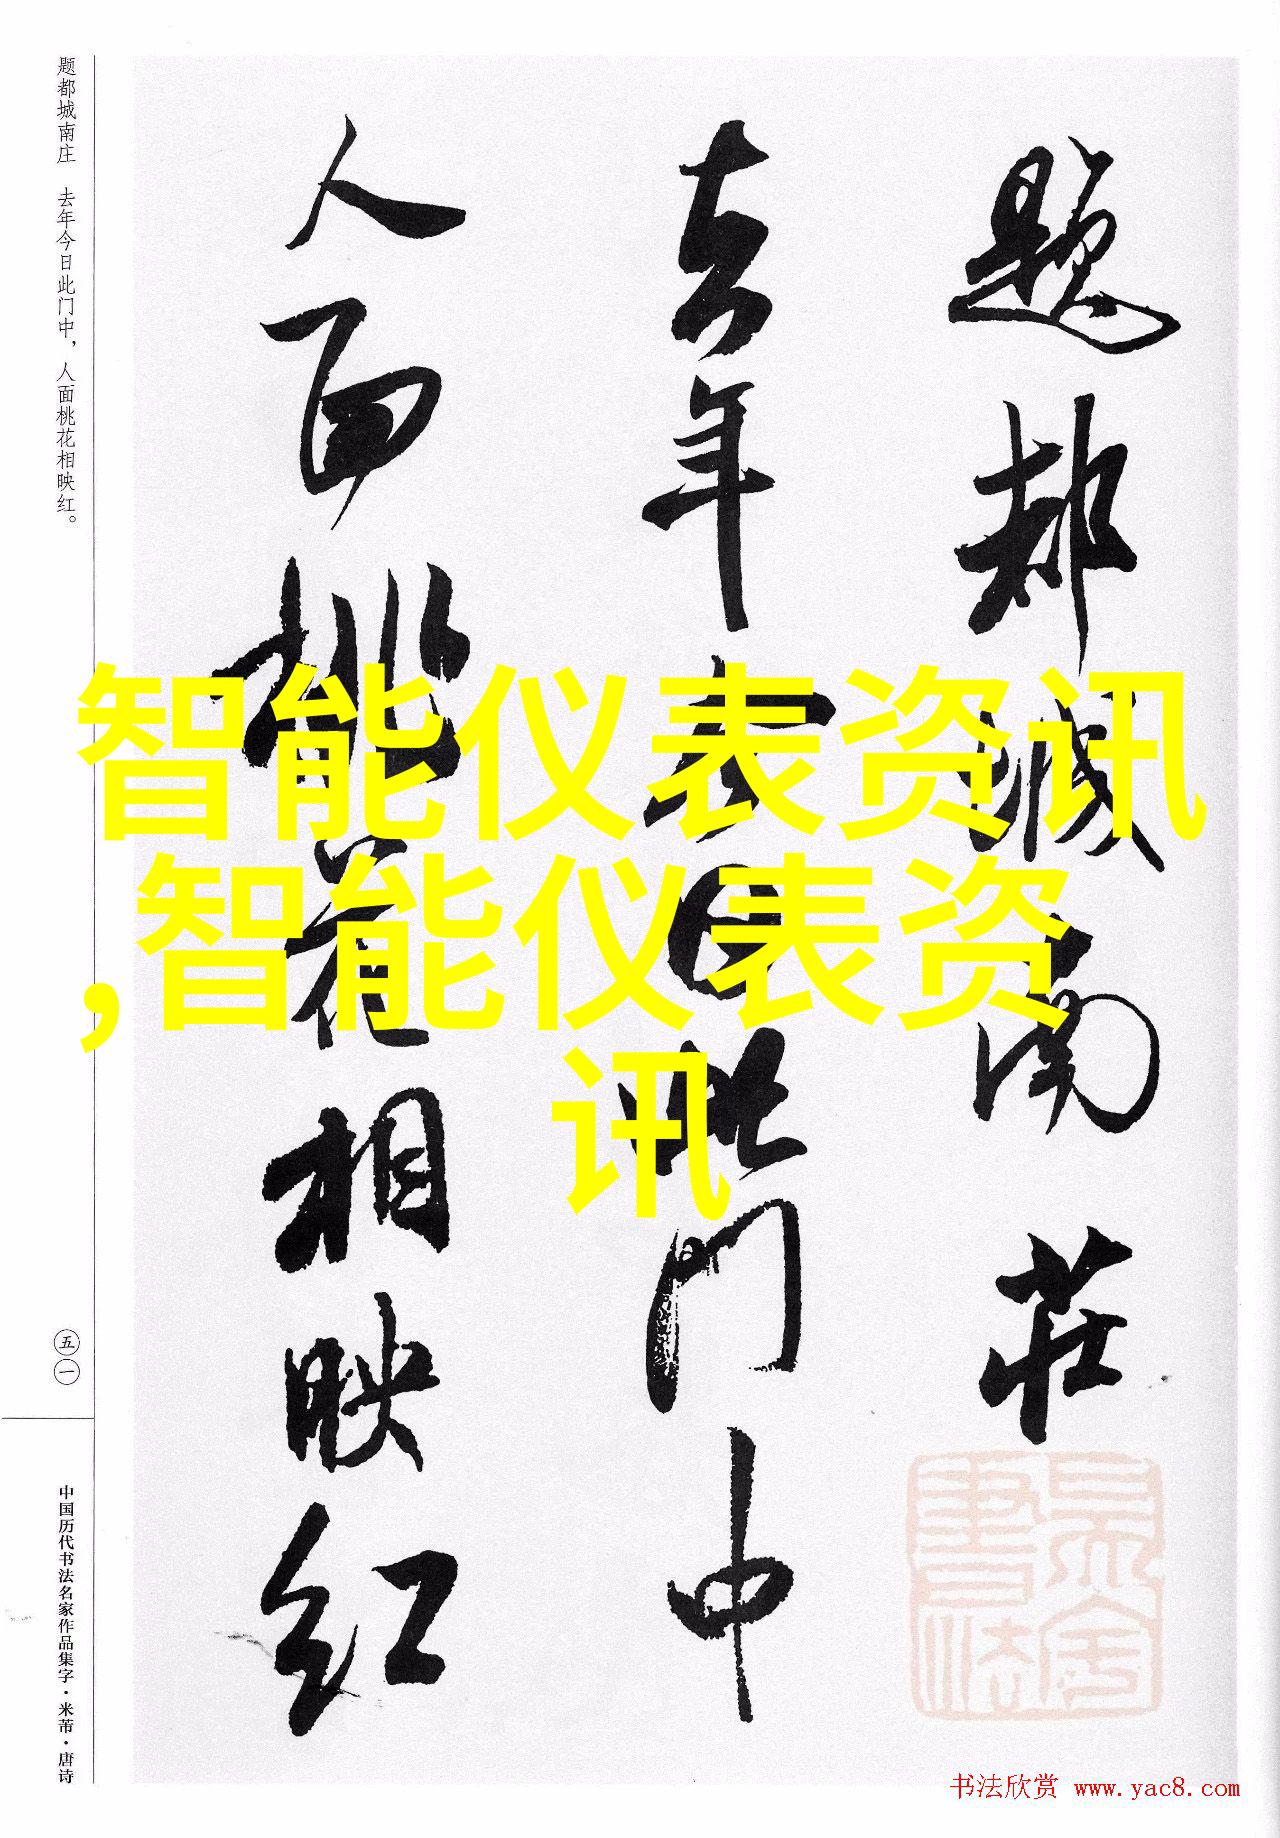 题都城南庄 去年今日此门中，人面桃花相映红。
五一
中国历代书法名家作品集字·米芾·唐诗
题都城南莊
去年今日此门中
人面桃花相映红
智能仪表资讯
,智能仪表资
讯
书法欣赏 www.yac8.com